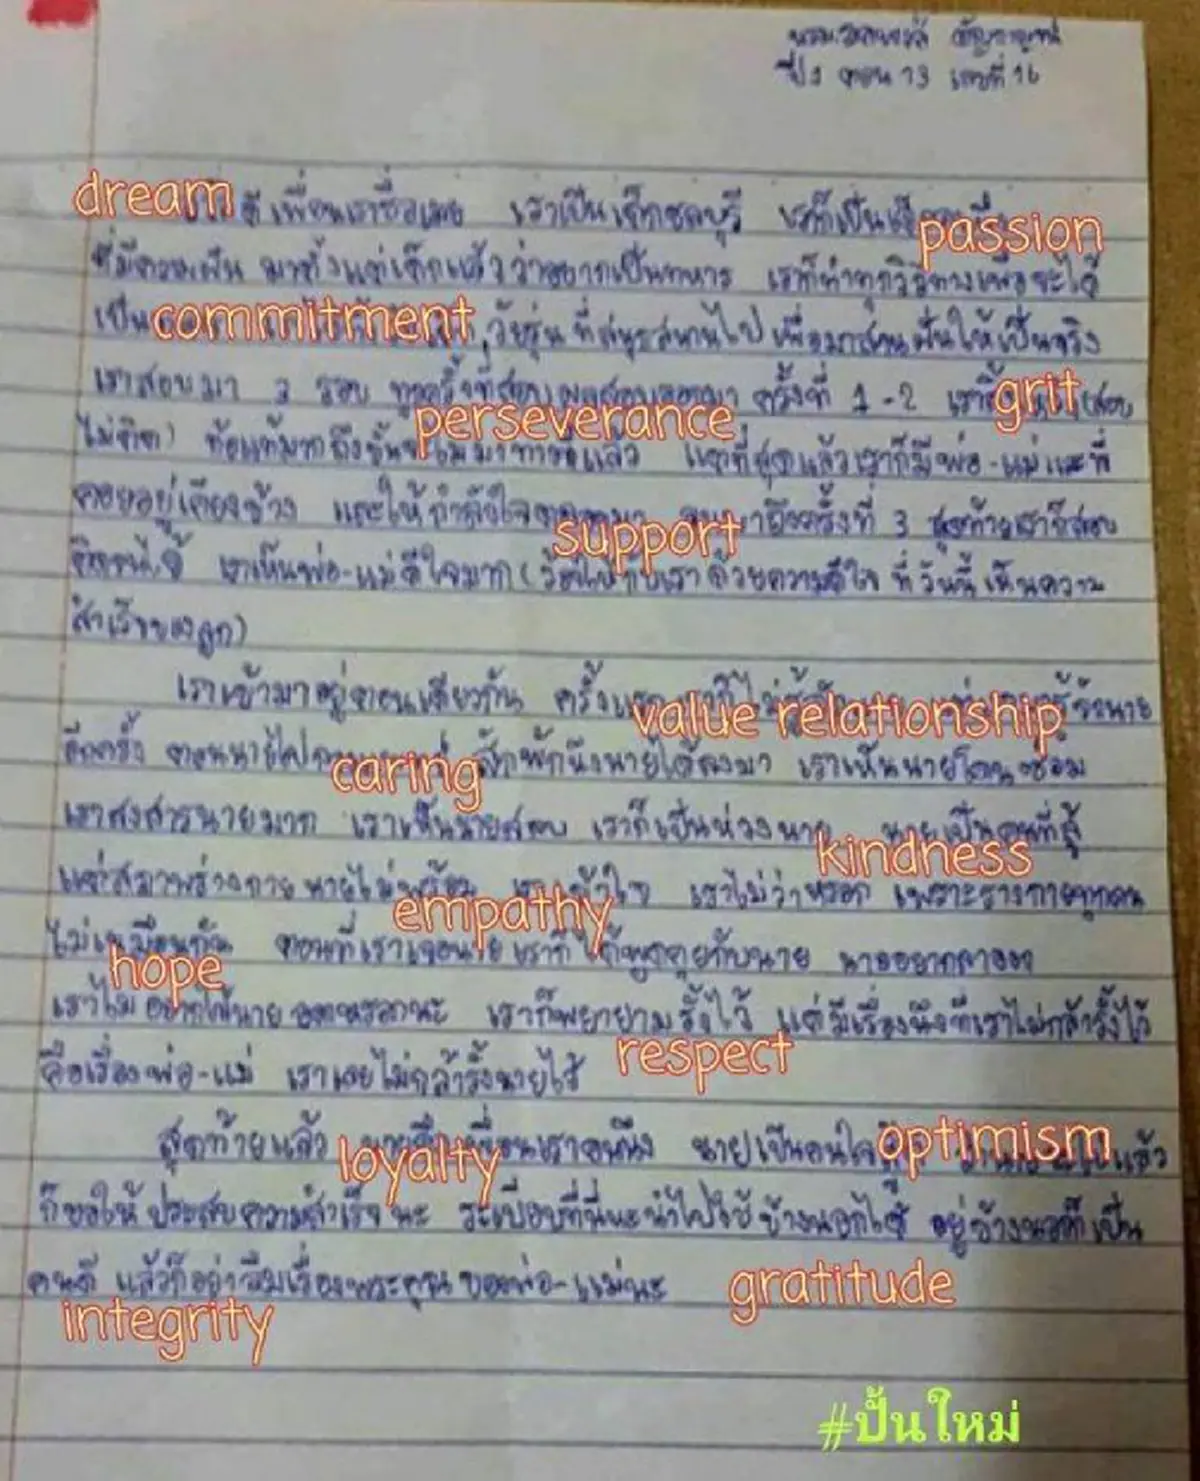 ปี 1 ตอน 13 เลขที่ 16
dream ดีเพื่อนเราชื่อเลย เราเป็นเด็กชลบุรี เราก็เป็นเด็ก
passion
ที่มีความฝัน มาตั้งแต่เด็กแล้วว่าอยากเป็นทหาร เราก็ทำทุกวิถีทางเพื่อจะได้
เป็น commitment วัยรุ่นที่สนุกสนานไป เพื่อมาสานฝันให้เป็นจริง
เราสอบมา 3 รอบ ทุกครั้งที่สอบผลสอบออกมา ครั้งที่ 1-2 เรา grit (สอบ
perseverance
ไม่ติด) ท้อแท้มากถึงขั้น แล้ว แต่ที่สุดแล้วเราก็มีพ่อ-แม่และพี่
คอยอยู่เคียงข้าง และให้กำลังใจ support มาถึงครั้งที่ 3 สุดท้ายเราก็สอบ
ติดจนได้ เราเห็นพ่อ-แม่ดีใจมาก (ร้องไห้กับเราด้วยความดีใจ ที่วันนี้เห็นความ
สำเร็จของลูก)
เราเข้ามาอยู่ตอนเดียวกัน ครั้งแรก เราก็ไม่รู้จัก value relationship รู้จักนาย
อีกครั้ง ตอนนายไป caring สักพักนึงนายได้ลงมา เราเห็นนายโดนซ่อม
เราสงสารนายมาก เราเห็นนายสลบ เราก็เป็นห่วงนาย นายเป็นคนที่สู้
kindness
แต่สภาพร่างกายนายไม่พร้อม เราเข้าใจ เราไม่ว่าหรอก เพราะร่างกายทุกคน
empathy
ไม่เหมือนกัน ตอนที่เราเจอนายเราก็ได้พูดคุยกับนาย นายอยากลาออก
hope
เราไม่อยากให้นายออกหรอกนะ เราก็พยายามรั้งไว้ แต่มีเรื่องนึงที่เราไม่กล้ารั้งไว้
คือเรื่องพ่อ-แม่ เราเลยไม่กล้ารั้งนายไว้ respect
สุดท้ายแล้ว นายคือเพื่อนเราคนนึง นายเป็นคนใจ optimism แล้ว
loyalty
ก็ขอให้ประสบความสำเร็จนะ ระเบียบที่นี่นะนำไปใช้ข้างนอกได้ อยู่ข้างนอกก็เป็น
คนดี แล้วก็อย่าลืมเรื่องพระคุณของพ่อ-แม่นะ gratitude
integrity
#ปั้นใหม่